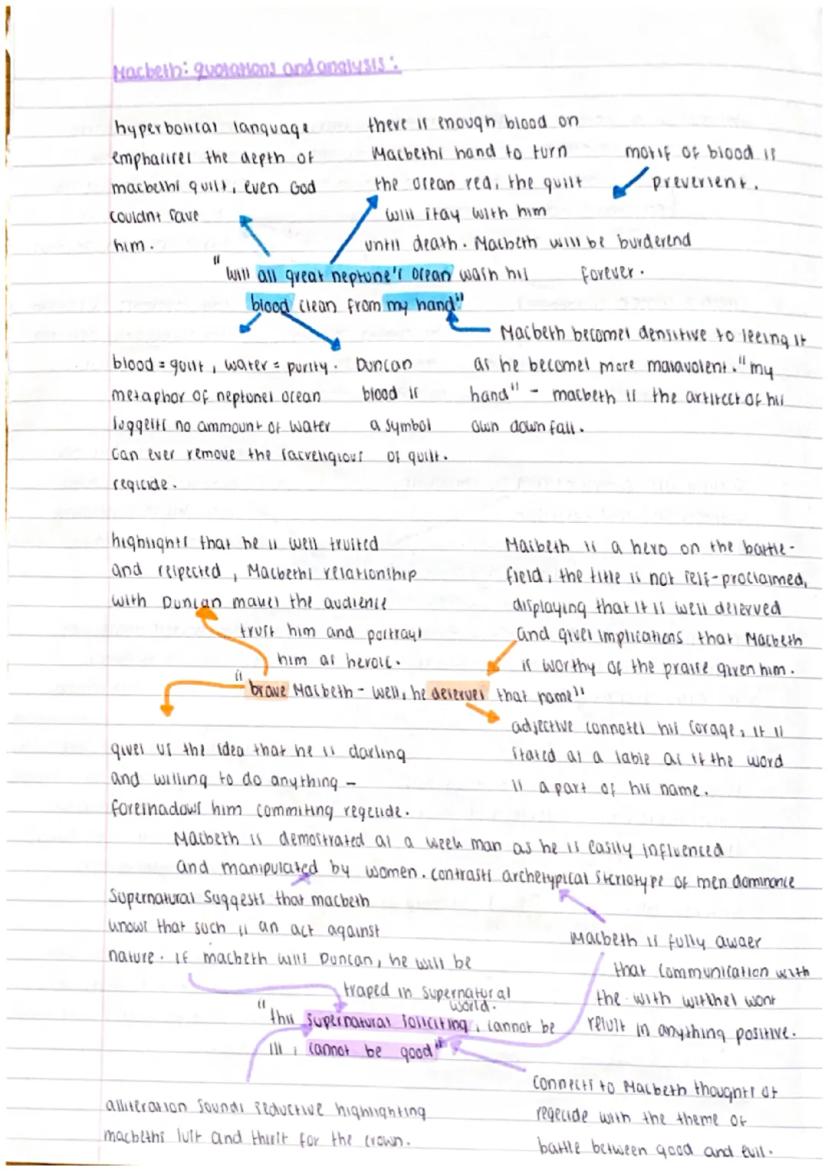 Macbeth: quotations and analysis:
hyperbolical language
emphasises the depth of
macbeths guilt, even God
couldnt save
him.
there is enough blood on
Macbeths hand to turn
the ocean red, the guilt
will stay with him
until death. Macbeth will be burderend
forever.
motif of blood is
preverient.
"will all great neptune's ocean wash his
blood clean from my hand"
blood = guilt, water = purity.
metaphor of neptunes ocean
suggests no ammount of water
can ever remove the sacreligious
regicide.
Duncan
blood is
a symbol
of guilt.
Macbeth becomes densitive to seeing it
as he becomes more malavolent. "my
hand" - macbeth is the artitect of his
own downfall.
highlights that he is well trusted
and respected, Macbeths relationship
with Duncan makes the audience
trust him and portrays
him as heroic.
Macbeth is a hero on the battle-
field, the title is not self-proclaimed,
displaying that it is well deserved
and gives implications that Macbeth
is worthy of the praise given him.
"brave Macbeth - well, he deserves that name"
gives us the idea that he is darling
and willing to do anything -
foreshadows him commiting regecide.
adjective connotes his corage, it is
stated as a lable as if the word
is a part of his name.
Macbeth is demostrated as a week man as he is easily influenced
and manipulated by women. contrasts archetypical steriotype of men dominance
Supernatural suggests that macbeth
knows that such is an act against
nature. If macbeth kills Duncan, he will be
traped in supernatural
world.
Macbeth is fully awaer
that communication with
the with witches wont
result in anything positive.
"this supernatural soliciting, cannot be
ill, cannot be good"
alliteration sounds seductive highlighting
macbeths lust and thirst for the crown.
connects to Macbeth thoughts of
regecide with the theme of
battle between good and evil.